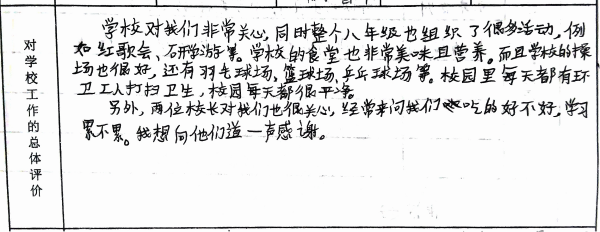 对学校工作的总体评价
学校对我们非常关心,同时整个八年级也组织了很多活动,例
如红歌会、研学游等。学校的食堂也非常美味且营养。而且学校的操
场也很好,还有羽毛球场,篮球场,乒乓球场等。校园里每天都有环
卫工人打扫卫生,校园每天都很干净。
另外,两位校长对我们也很关心,经常来问我们吃的好不好,学习
累不累。我想向他们道一声感谢。